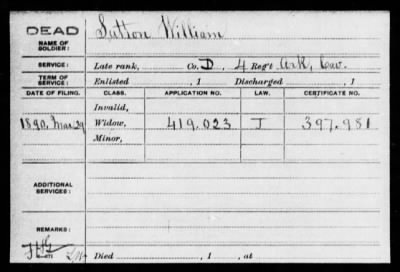 DEAD Sutton William
NAME OF SOLDIER:
SERVICE: Late rank, Co. D, 4 Reg't Ark, Cav.
TERM OF SERVICE: Enlisted , 1 Discharged , 1
DATE OF FILING. CLASS. APPLICATION NO. LAW. CERTIFICATE NO.
Invalid,
1890, Mar 29 Widow, 419.023 J 397.981
Minor,
ADDITIONAL SERVICES:
REMARKS:
Died , 1 , at